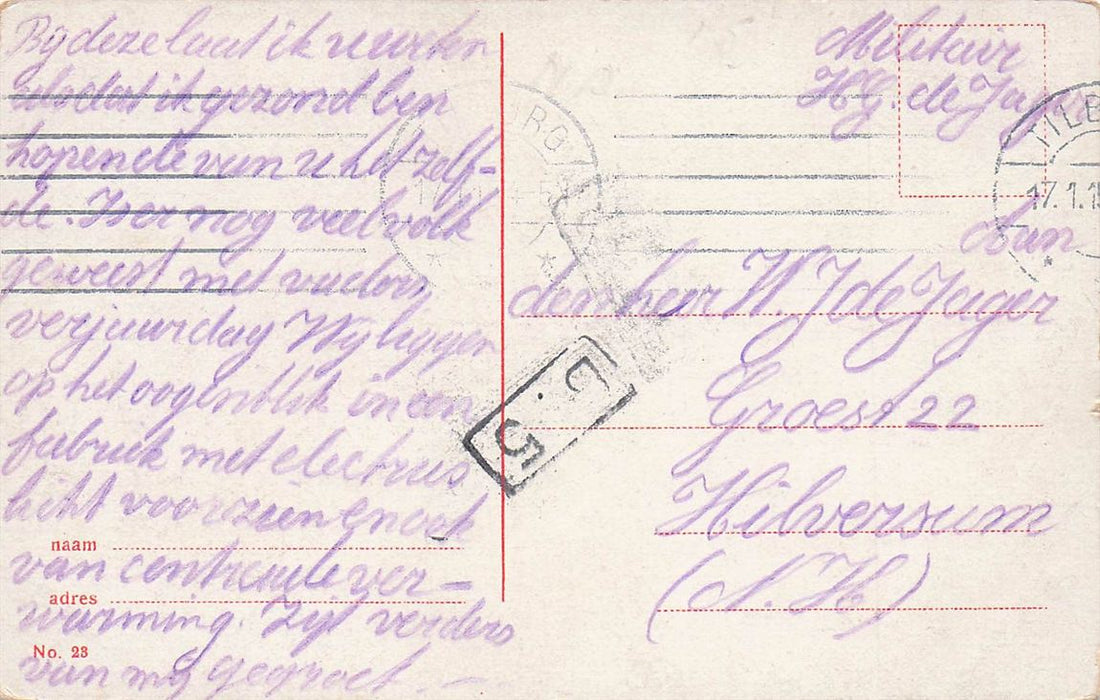 Bij deze laat ik u weten
alsdat ik gezond ben
hopende van u het zelf-
de. Is er nog veel volk
geweest met vaders
verjaardag Wij liggen
op het oogenblik in een
fabriek met electries
licht voorzien en ook
van centraale ver-
warming. Zijt verders
van mij gegroet. —
naam
adres
No. 23
Militair
H.G. de Jager
Aan
den heer W. J de Jager
Groest 22
Hilversum
(N. H)
TILB
17.1.15
RG
L. 5